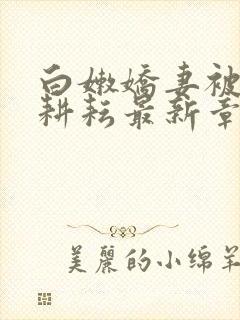 白嫩嬌妻被
耕耘最新章
美麗的小绵羊